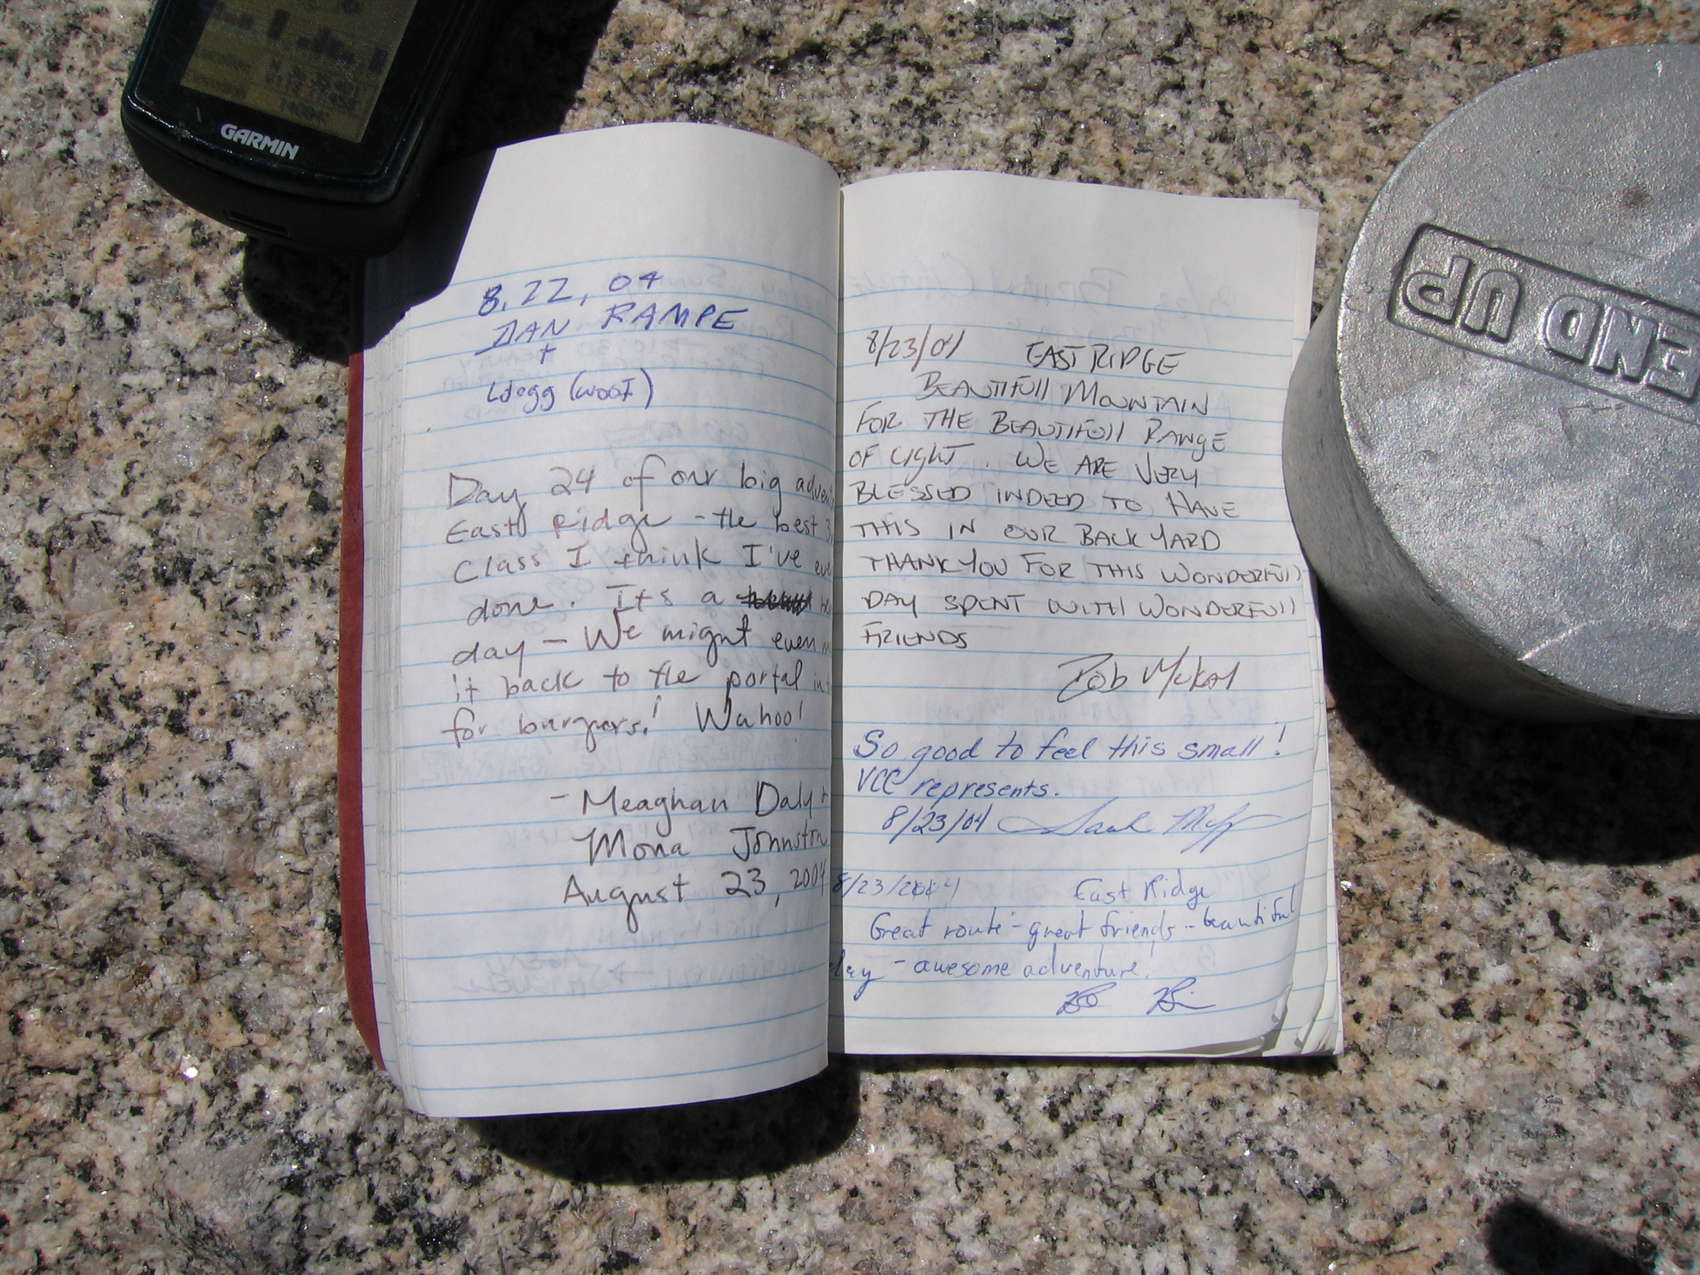 GARMIN
8.22.04
DAN RAMPE
+
(woof)
Day 24 of our big
East Ridge - the best
Class I think I've
done. Its a
day - We might even
it back to the portal
for burgers! Wahoo!
- Meaghan Daly +
Mona
August 23, 2004
8/23/04 EAST RIDGE
BEAUTIFULL MOUNTAIN
FOR THE BEAUTIFULL RANGE
OF LIGHT. WE ARE VERY
BLESSED INDEED TO HAVE
THIS IN OUR BACK YARD
THANK YOU FOR THIS WONDERFULL
DAY SPENT WITH WONDERFULL
FRIENDS
Bob
So good to feel this small!
VCC represents.
8/23/04
8/23/2004 East Ridge
Great route - great friends - beautiful
day - awesome adventure!
END UP